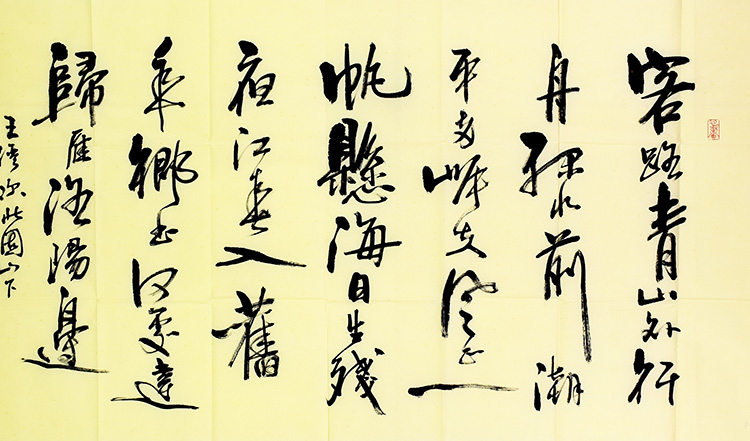 客路青山外行
舟绿水前潮
平两岸失风正一
帆懸海日生残
夜江春入舊
年鄉书何處達
歸雁洛陽邊
王湾次北固山下